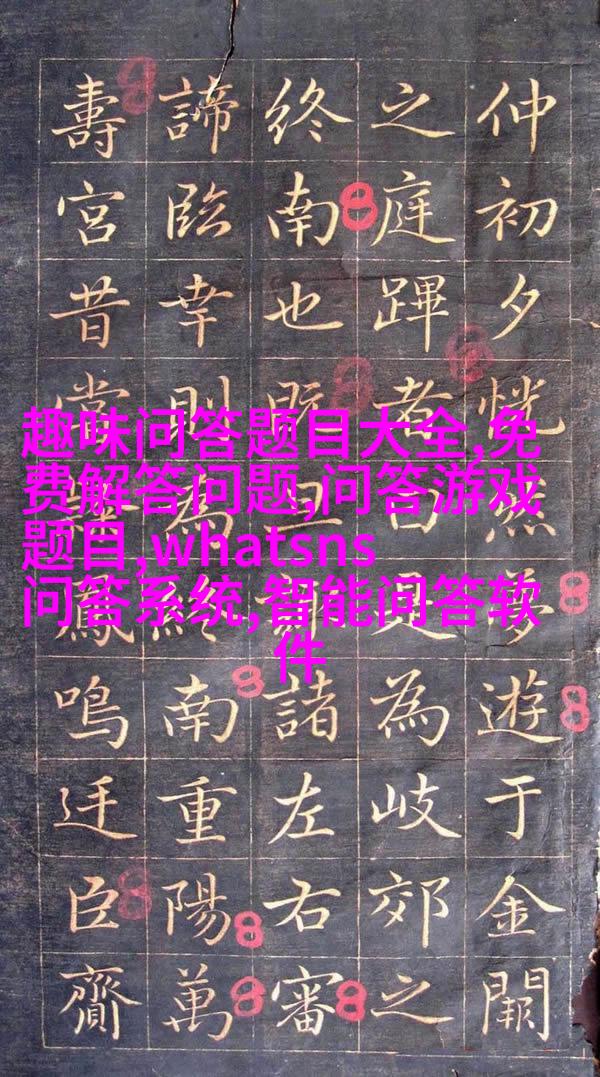 趣味问答题目大全,免
费解答问题,问答游戏
题目,whatsns
问答系统,智能问答软
件
仲初夕恍然夢遊于金闕
之庭蹕者曰為岐郊之
終南也既旦諸左右審
諦臨幸則為終南重陽萬
壽宮昔常鳳鳴迁臣齎